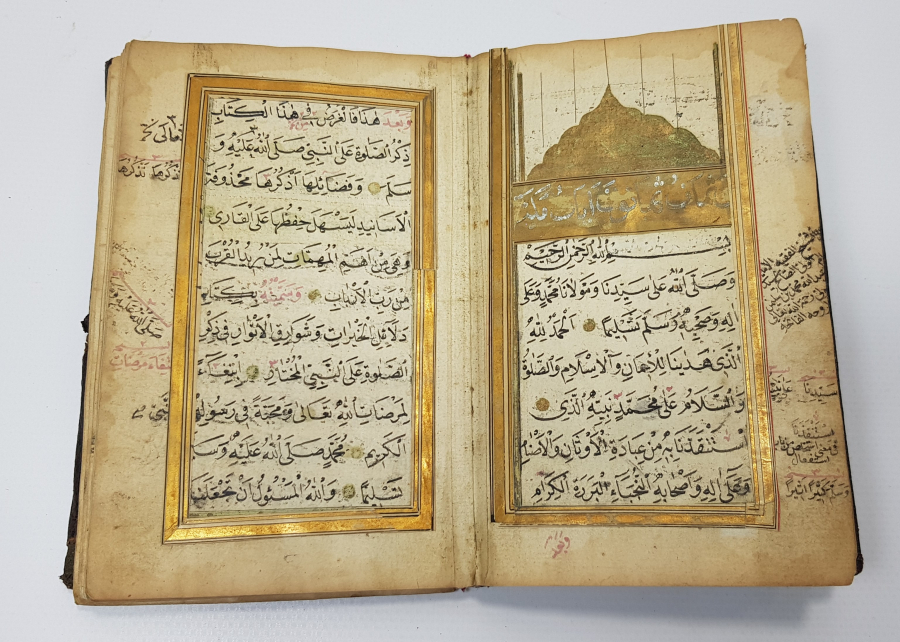 بِسْمِ اللهِ الرَّحْمٰنِ الرَّحِيْمِ
وَصَلَّى اللهُ عَلٰى سَيِّدِنَا وَمَوْلَانَا مُحَمَّدٍ وَعَلٰى
اٰلِهِ وَصَحْبِهِ وَسَلَّمَ تَسْلِيْمًا اَلْحَمْدُ لِلّٰهِ
الَّذِى هَدٰينَا لِلْاِيْمَانِ وَالْاِسْلَامِ وَالصَّلٰوةُ
وَالسَّلَامُ عَلٰى مُحَمَّدٍ نَبِيِّهِ الَّذِى
اسْتَنْقَذَنَا بِهِ مِنْ عِبَادَةِ الْاَوْثَانِ وَالْاَصْنَامِ
وَعَلٰى اٰلِهِ وَاَصْحَابِهِ النُّجَبَاءِ الْبَرَرَةِ الْكِرَامِ
وَبَعْدَ
سَيِّدِنَا
اِسْتَنْقَذَنَا
كَثِيْرًا اَثِيْرًا
وَبَعْدَ هٰذَا فَالْغَرَضُ فِى هٰذَا الْكِتَابِ
ذِكْرُ الصَّلٰوةِ عَلَى النَّبِيِّ صَلَّى اللهُ عَلَيْهِ وَ
سَلَّمَ وَفَضَائِلِهَا اَذْكُرُهَا مَحْذُوفَةَ
الْاَسَانِيْدِ لِيَسْهُلَ حِفْظُهَا عَلَى الْقَارِئِ
وَهِيَ مِنْ اَهَمِّ الْمُهِمَّاتِ لِمَنْ يُرِيْدُ الْقُرْبَ
مِنْ رَبِّ الْاَرْبَابِ وَسَمَّيْتُهُ بِكِتَابِ
دَلَائِلِ الْخَيْرَاتِ وَشَوَارِقِ الْاَنْوَارِ فِى ذِكْرِ
الصَّلٰوةِ عَلَى النَّبِيِّ الْمُخْتَارِ اِبْتِغَاءً
لِمَرْضَاتِ اللهِ تَعَالٰى وَمَحَبَّةً فِى رَسُوْلِهِ
الْكَرِيْمِ مُحَمَّدٍ صَلَّى اللهُ عَلَيْهِ وَسَلَّمَ
تَسْلِيْمًا وَاللهُ الْمَسْئُوْلُ اَنْ تَجْعَلَنَا
تَعَالٰى
نَذْكُرُهَا تَذْكُرُهَا
صَلَّى اللهُ عَلَيْهِ